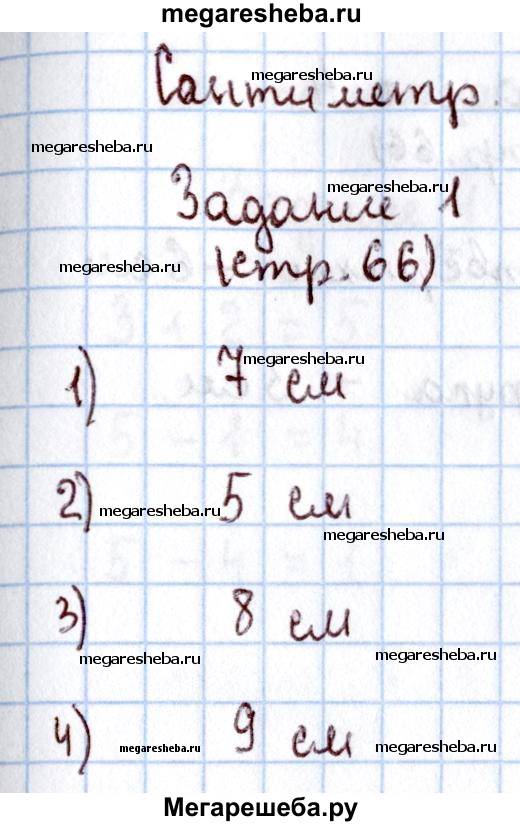 megaresheba.ru
Сантиметр.
megaresheba.ru
megaresheba.ru
Задание 1
megaresheba.ru
(стр. 66)
megaresheba.ru
1) 7 см
megaresheba.ru
2) 5 см
megaresheba.ru
megaresheba.ru
3) 8 см
megaresheba.ru
megaresheba.ru
4) 9 см
megaresheba.ru
megaresheba.ru
Мегарешеба.ру